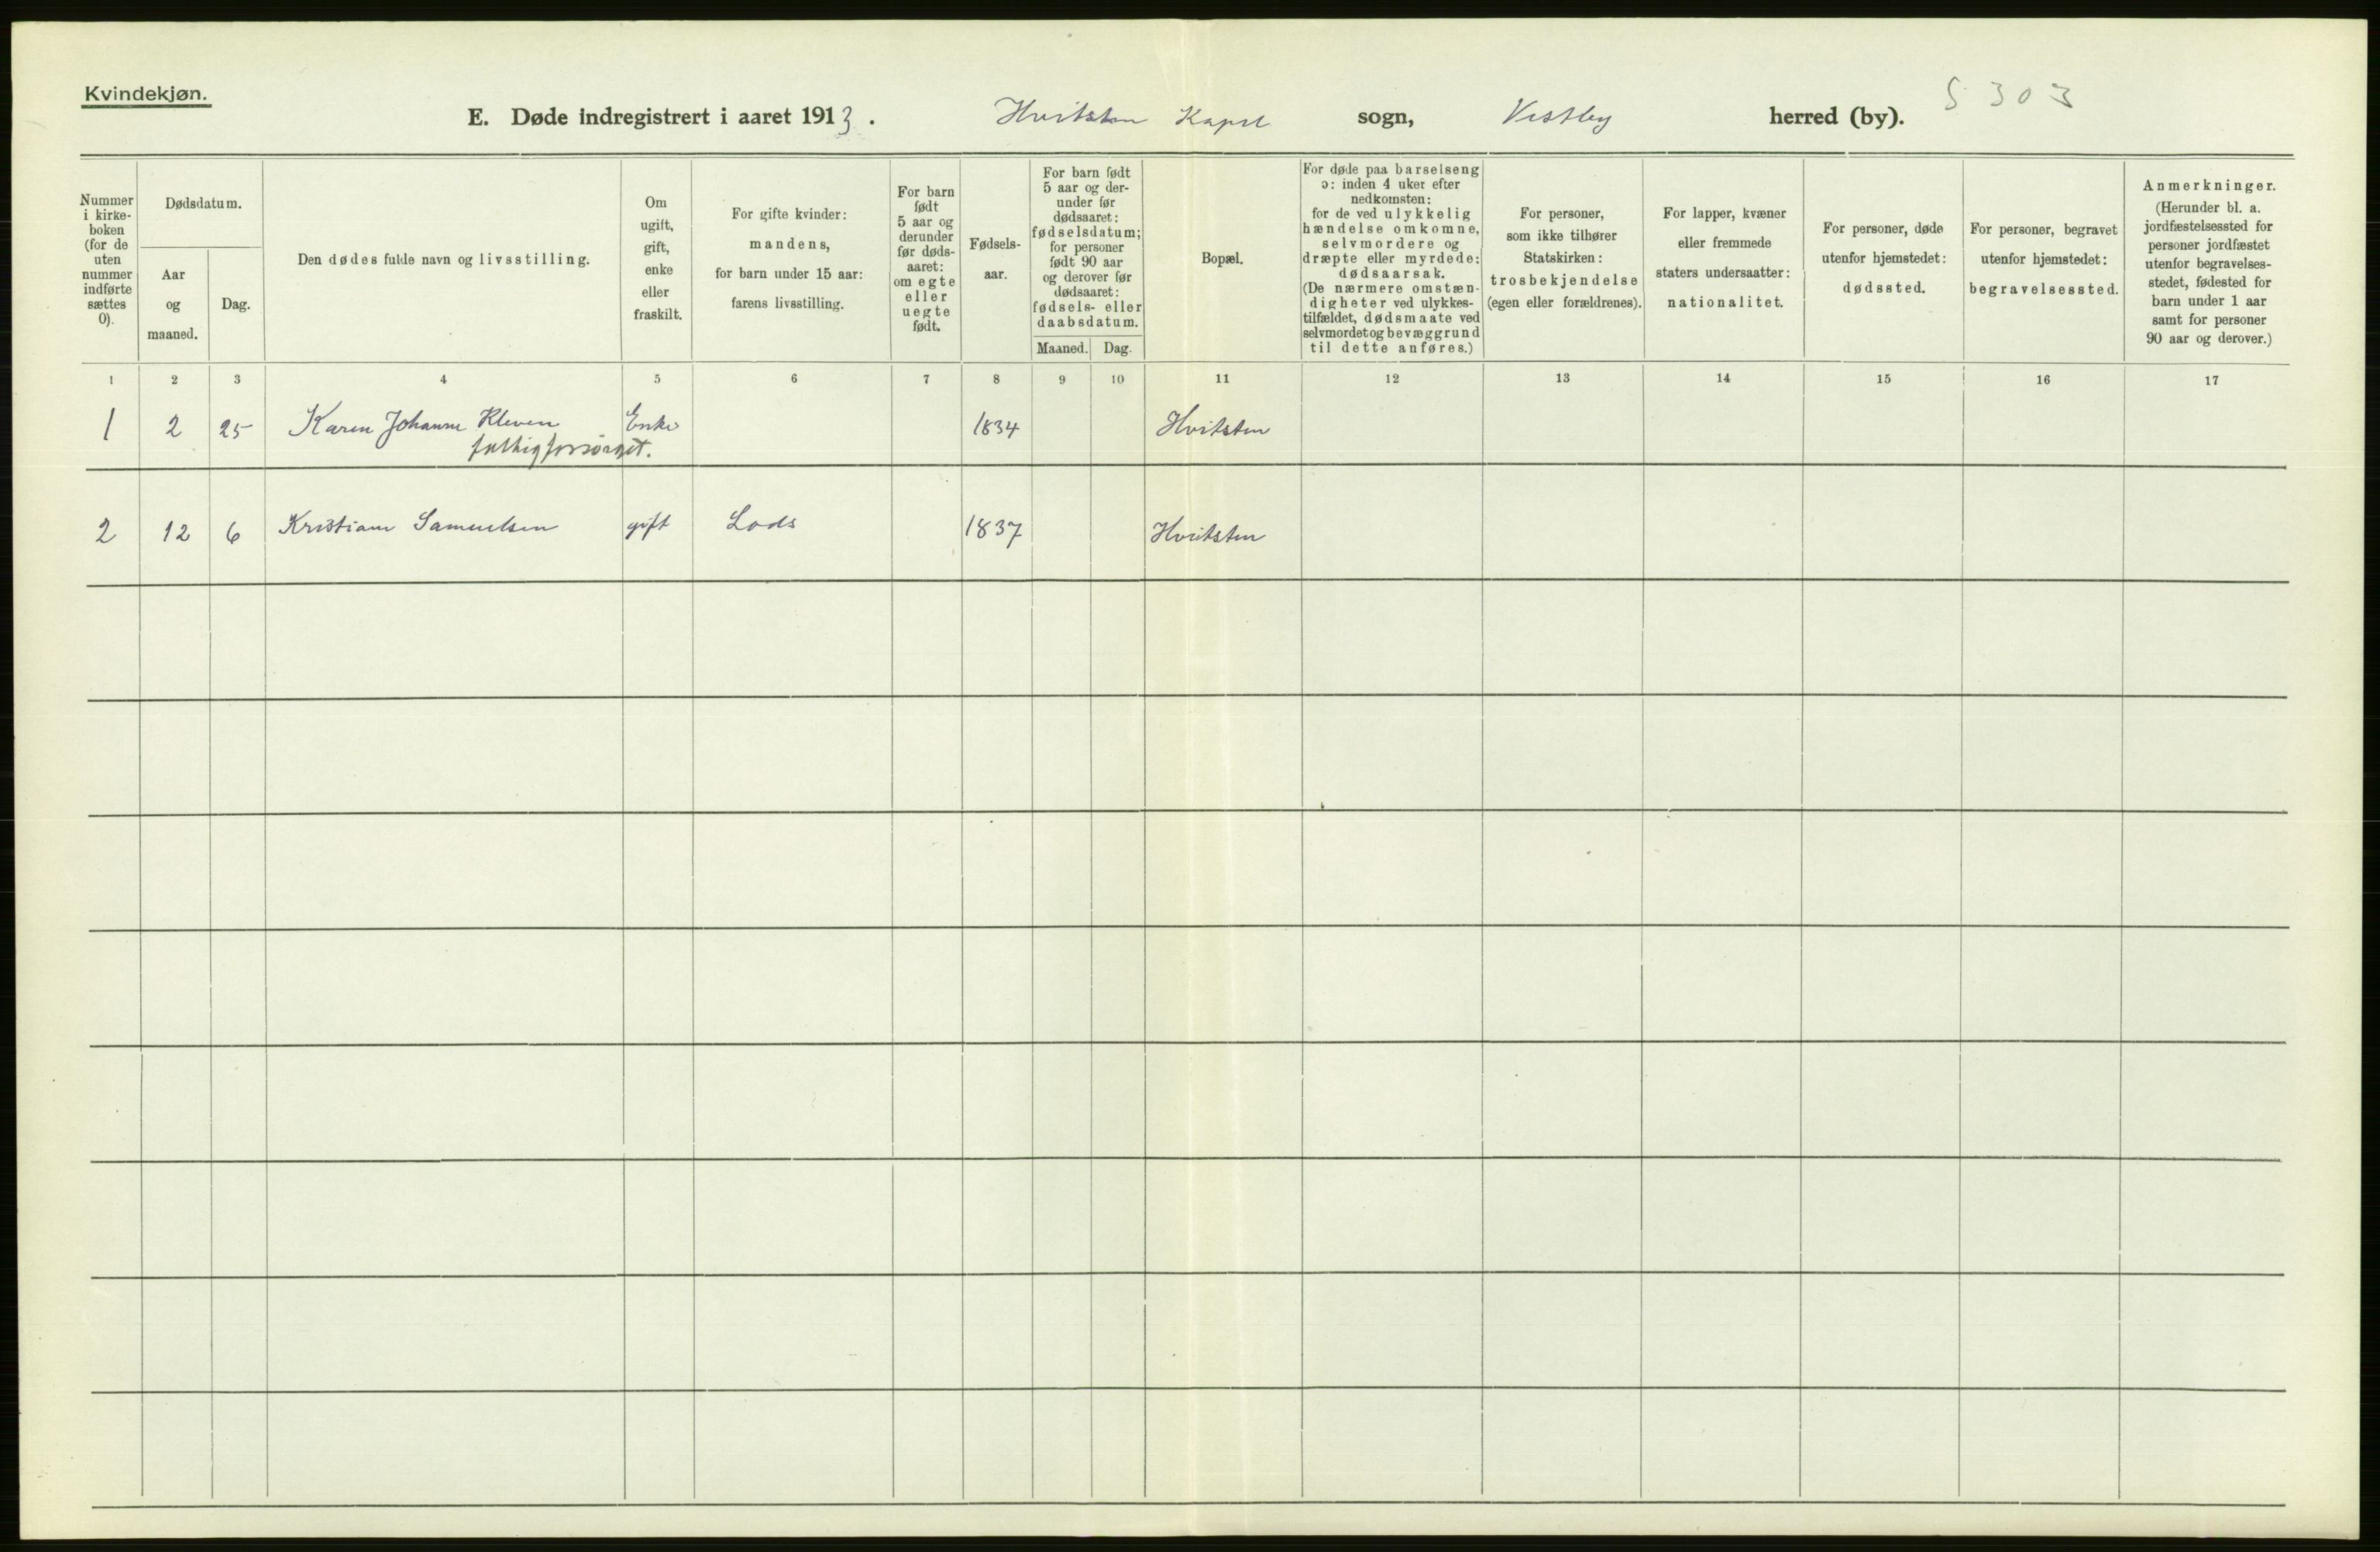 Kvindekjøn.
E. Døde indregistrert i aaret 1913. Hvitsten Kapel sogn, Vestby herred (by). 5 303
Nummer
i kirke-
boken
(for de
uten
nummer
indførte
sættes
0).
Dødsdatum.
Aar
og
maaned.
Dag.
Den dødes fulde navn og livsstilling.
Om
ugift,
gift,
enke
eller
fraskilt.
For gifte kvinder:
mandens,
for barn under 15 aar:
farens livsstilling.
For barn
født
5 aar og
derunder
før døds-
aaret:
om egte
eller
uegte
født.
Fødsels-
aar.
For barn født
5 aar og der-
under før
dødsaaret:
fødselsdatum;
for personer
født 90 aar
og derover før
dødsaaret:
fødsels- eller
daabsdatum.
Maaned. Dag.
Bopæl.
For døde paa barselseng
ɔ: inden 4 uker efter
nedkomsten:
for de ved ulykkelig
hændelse omkomne,
selvmordere og
dræpte eller myrdede:
dødsaarsak.
(De nærmere omstæn-
digheter ved ulykkes-
tilfældet, dødsmaate ved
selvmordet og bevæggrund
til dette anføres.)
For personer,
som ikke tilhører
Statskirken:
trosbekjendelse
(egen eller forældrenes).
For lapper, kvæner
eller fremmede
staters undersaatter:
nationalitet.
For personer, døde
utenfor hjemstedet:
dødssted.
For personer, begravet
utenfor hjemstedet:
begravelsessted.
Anmerkninger.
(Herunder bl. a.
jordfæstelsessted for
personer jordfæstet
utenfor begravelses-
stedet, fødested for
barn under 1 aar
samt for personer
90 aar og derover.)
1 2 3 4 5 6 7 8 9 10 11 12 13 14 15 16 17
1 2 25 Karen Johanne Kleven Enke 1834 Hvitsten
fattigforsørget.
2 12 6 Kristiane Samuelsen gift Lods 1837 Hvitsten